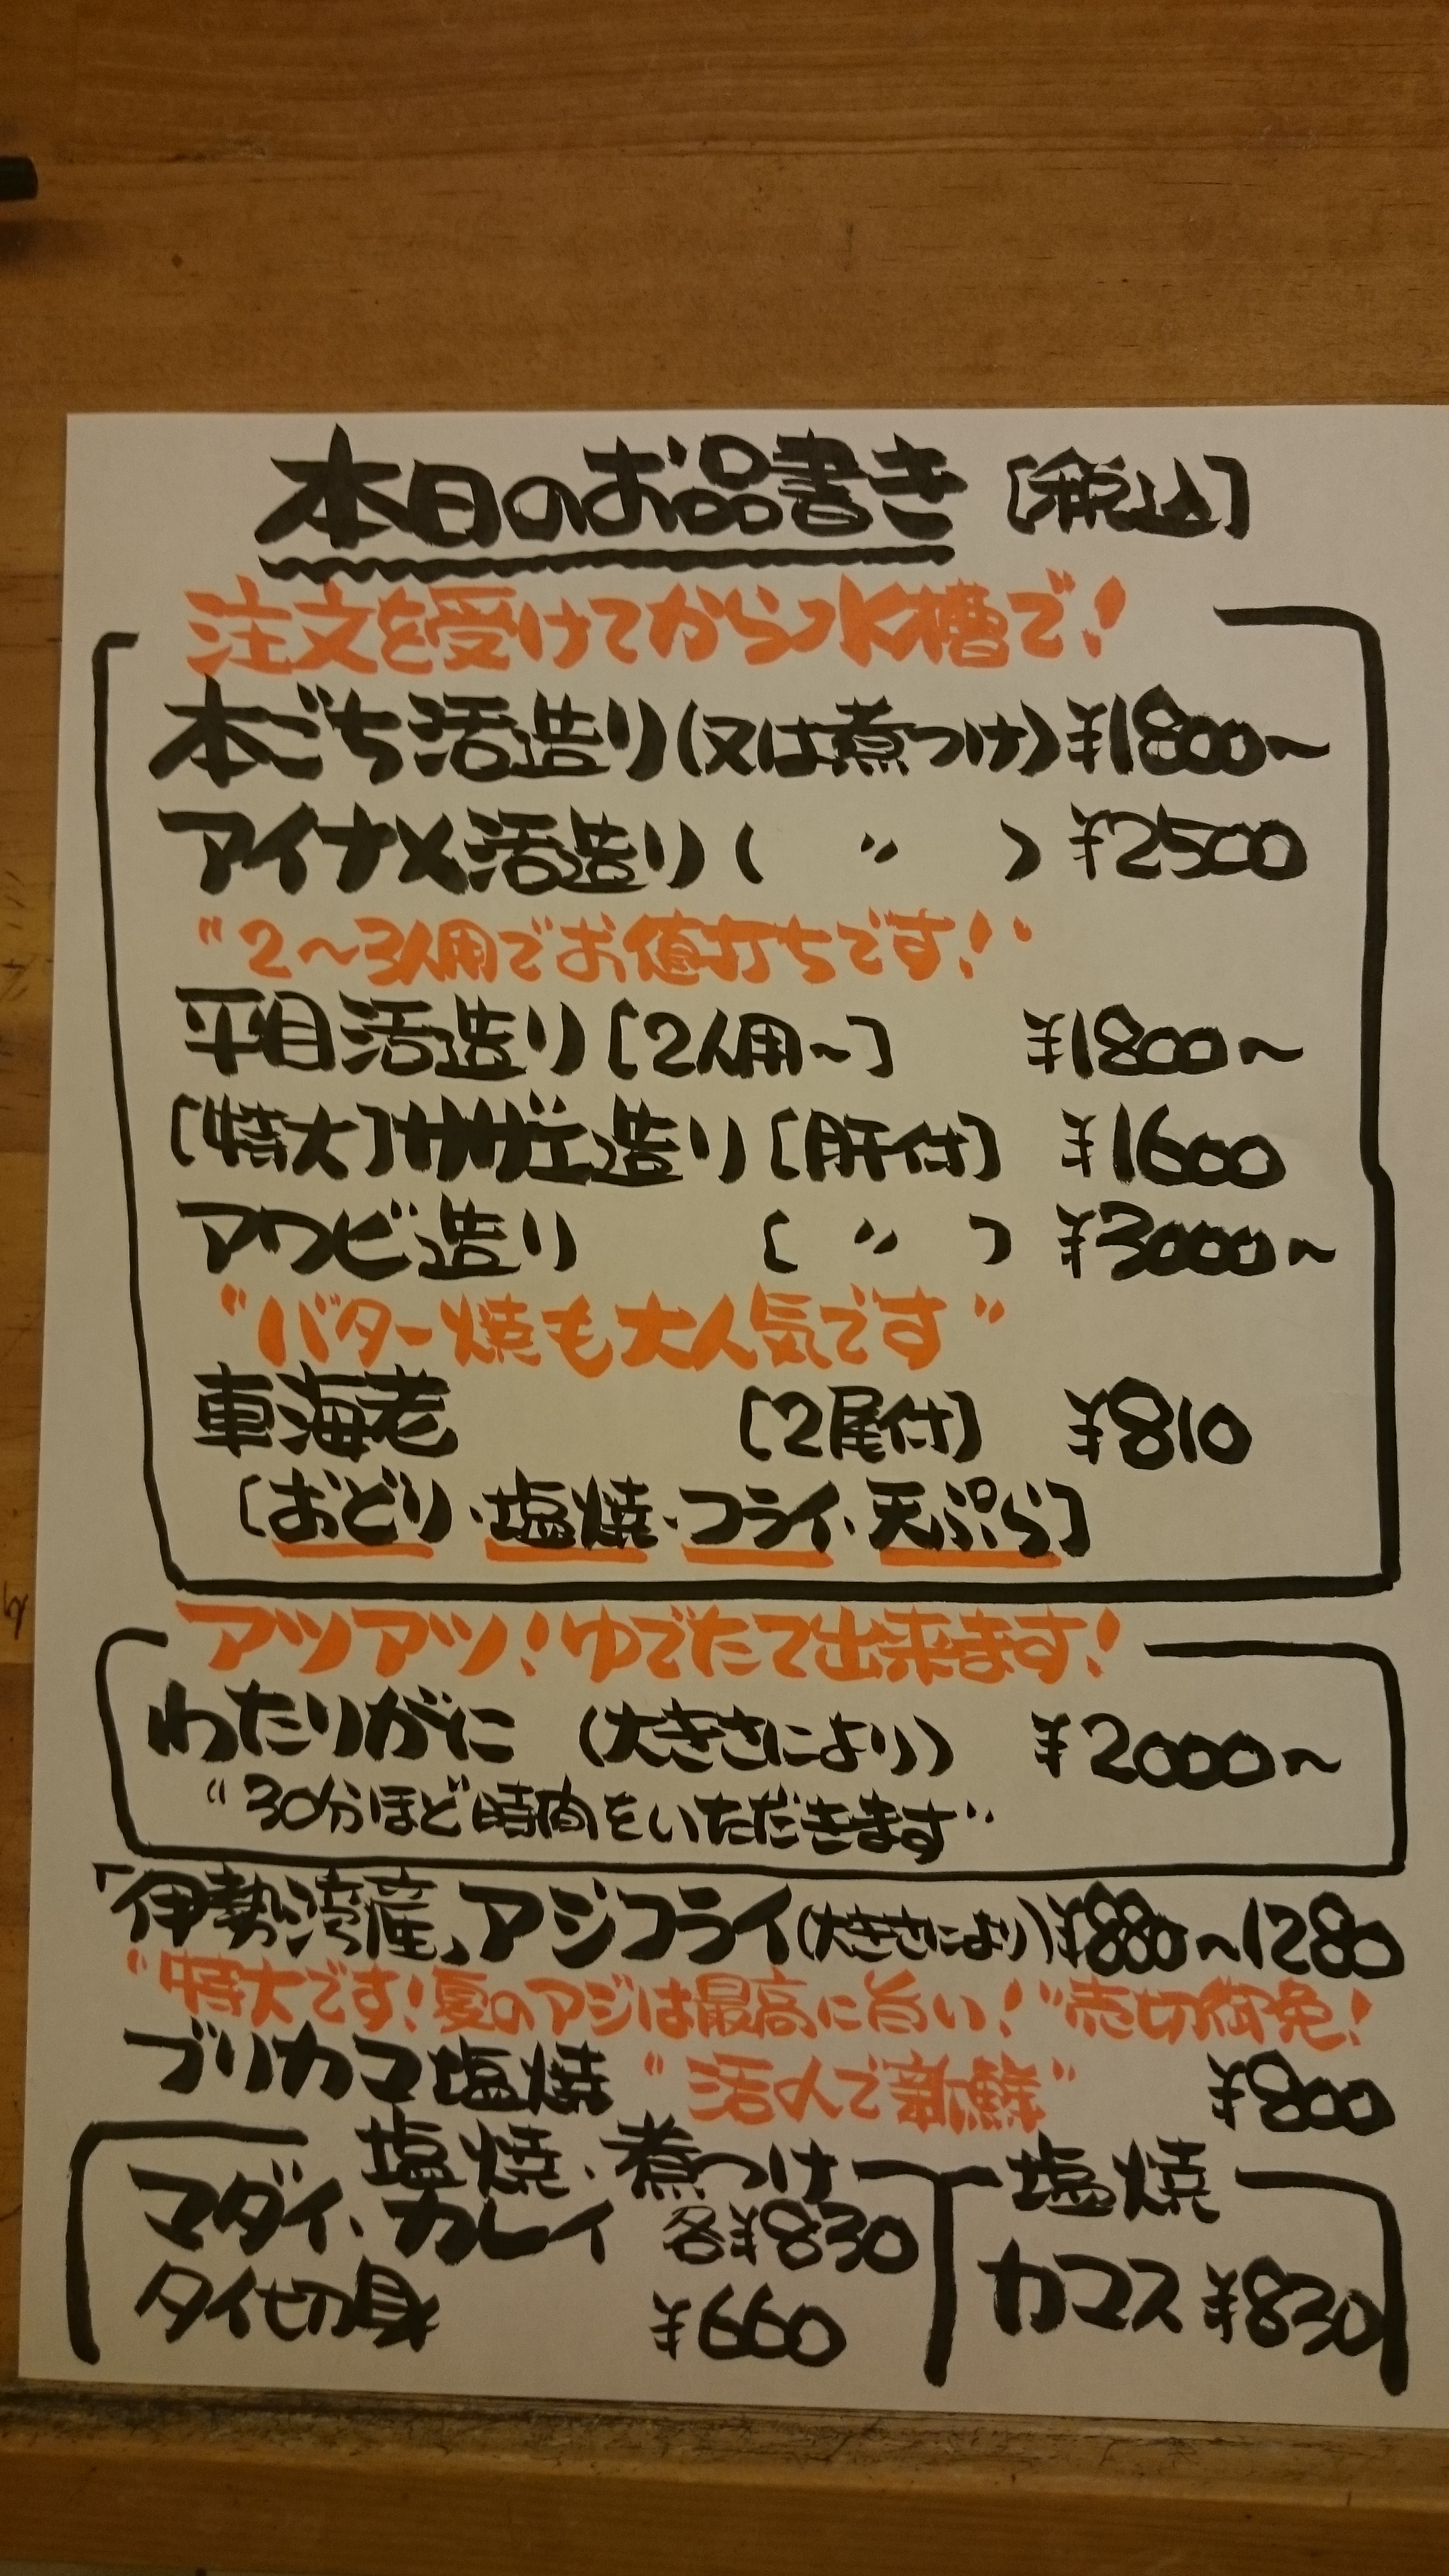 本日のお品書き [税込]
注文を受けてから水槽で!
本ごち活造り(又は煮つけ) ¥1800～
アイナメ活造り( 〃 ) ¥2500
"2～3人用でお値打ちです!"
平目活造り[2人用～] ¥1800～
[特大]サザエ造り[肝付] ¥1600
アワビ造り [ 〃 ] ¥3000～
"バター焼も大人気です"
車海老 [2尾付] ¥810
[おどり・塩焼・フライ・天ぷら]
アツアツ!ゆでたて出来ます!
わたりがに (大きさにより) ¥2000～
"30分ほど時間をいただきます"
「伊勢湾産」アジフライ(大きさにより)¥880～1280
"特大です!夏のアジは最高に旨い!"売切御免!
ブリカマ塩焼 "活〆で新鮮" ¥800
塩焼・煮つけ
マダイ、カレイ 各¥830
タイ切身 ¥660
塩焼
カマス ¥830